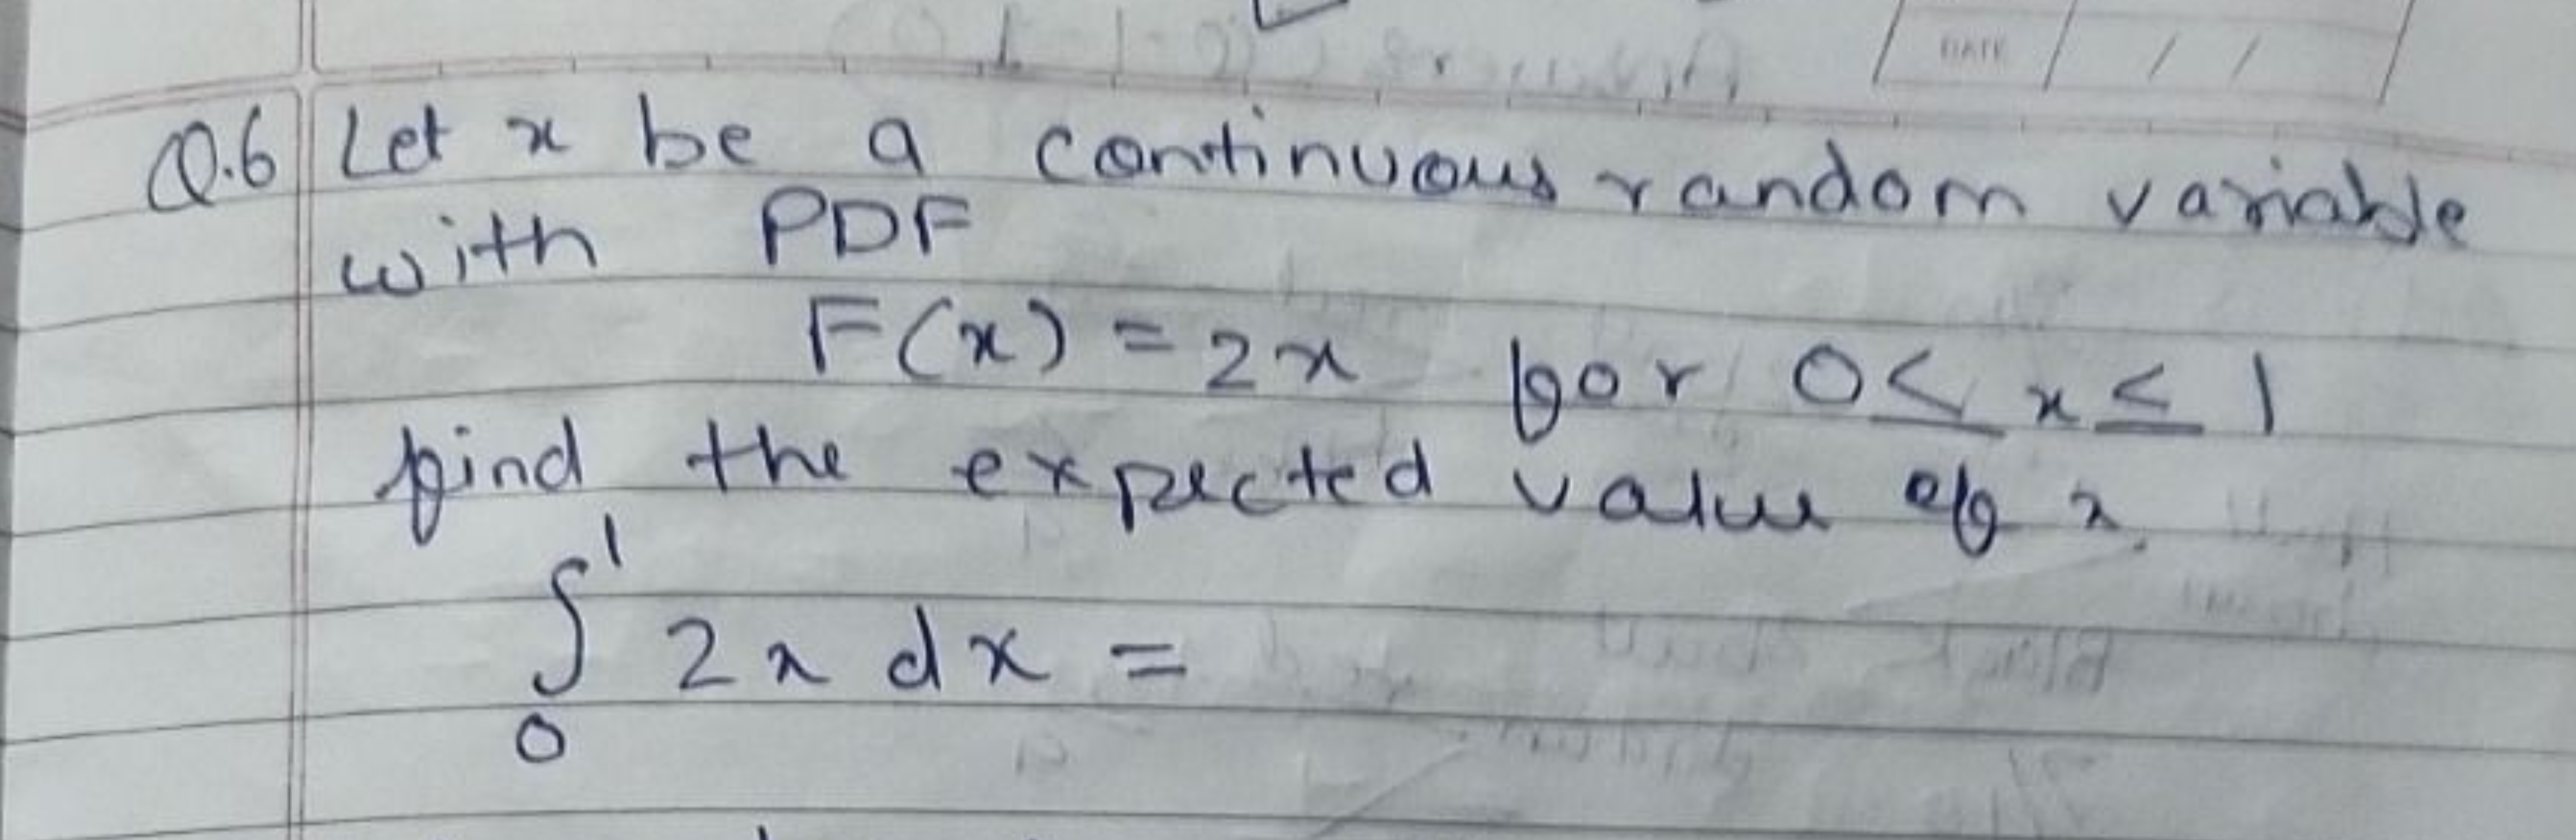 DATE / /
Q.6 Let x be a continuous random variable
with PDF
F(x) = 2x for 0 ≤ x ≤ 1
find the expected value of x.
∫₀¹ 2x dx =